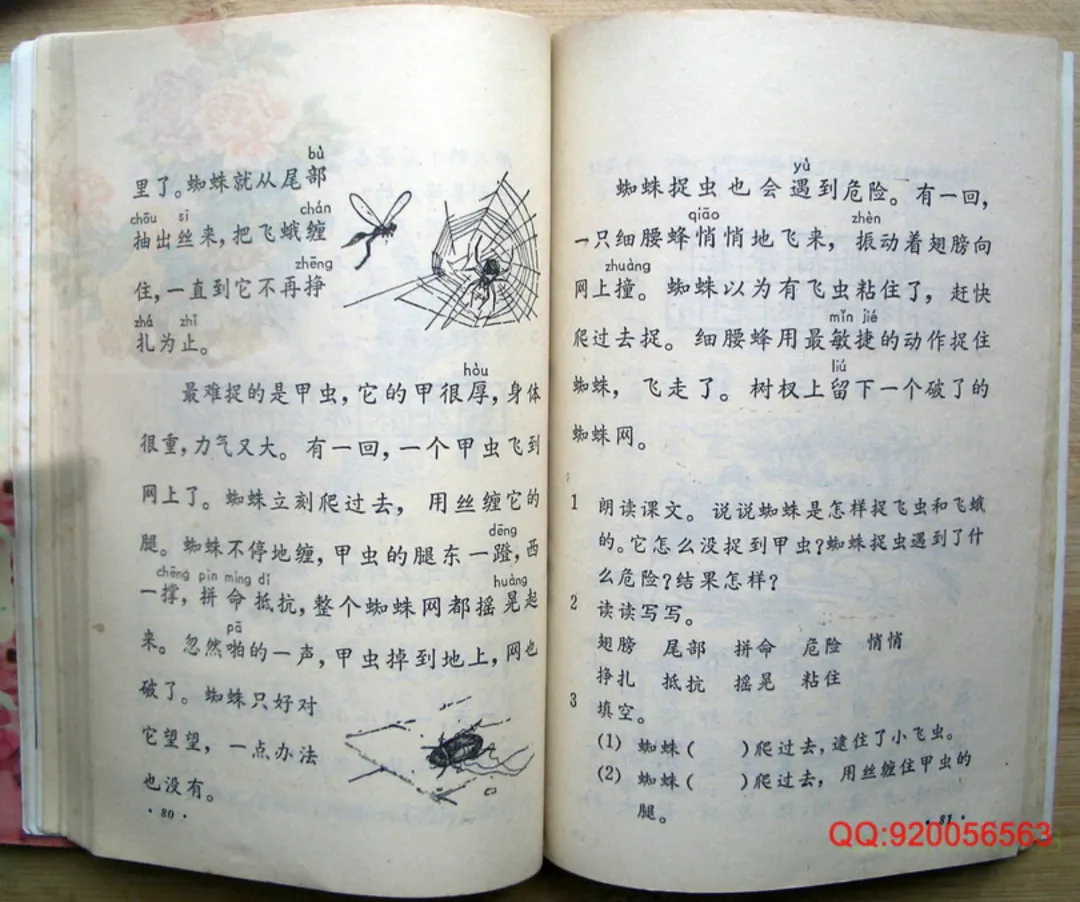 bù
里了。蜘蛛就从尾部
chōu sī chán
抽出丝来，把飞蛾缠
zhēng
住，一直到它不再挣
zhá zhǐ
扎为止。
hòu
最难捉的是甲虫，它的甲很厚，身体
很重，力气又大。有一回，一个甲虫飞到
网上了。蜘蛛立刻爬过去，用丝缠它的
dēng
腿。蜘蛛不停地缠，甲虫的腿东一蹬，西
chēng pìn mìng dǐ huàng
一撑，拼命抵抗，整个蜘蛛网都摇晃起
pā
来。忽然啪的一声，甲虫掉到地上，网也
破了。蜘蛛只好对
它望望，一点办法
也没有。
·80·
yù
蜘蛛捉虫也会遇到危险。有一回，
qiāo zhèn
一只细腰蜂悄悄地飞来，振动着翅膀向
zhuàng
网上撞。蜘蛛以为有飞虫粘住了，赶快
mǐn jié
爬过去捉。细腰蜂用最敏捷的动作捉住
liú
蜘蛛，飞走了。树杈上留下一个破了的
蜘蛛网。
1 朗读课文。说说蜘蛛是怎样捉飞虫和飞蛾
的。它怎么没捉到甲虫？蜘蛛捉虫遇到了什
么危险？结果怎样？
2 读读写写。
翅膀 尾部 拼命 危险 悄悄
挣扎 抵抗 摇晃 粘住
3 填空。
(1) 蜘蛛( )爬过去，逮住了小飞虫。
(2) 蜘蛛( )爬过去，用丝缠住甲虫的
腿。
·81·
QQ:920056563